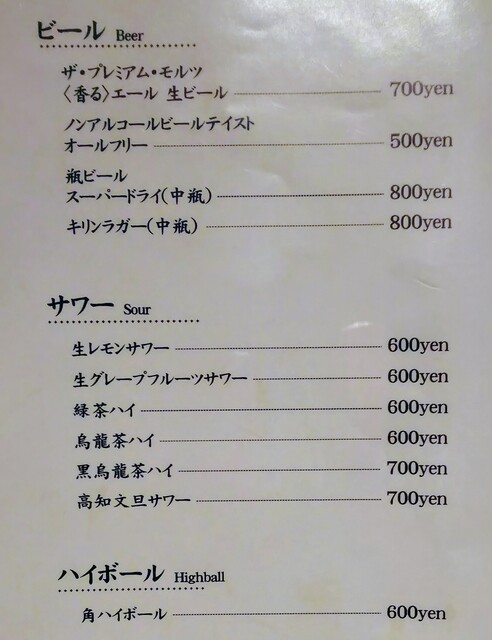 ビール Beer
ザ・プレミアム・モルツ
〈香る〉エール 生ビール 700yen
ノンアルコールビールテイスト
オールフリー 500yen
瓶ビール
スーパードライ(中瓶) 800yen
キリンラガー(中瓶) 800yen
サワー Sour
生レモンサワー 600yen
生グレープフルーツサワー 600yen
緑茶ハイ 600yen
烏龍茶ハイ 600yen
黒烏龍茶ハイ 700yen
高知文旦サワー 700yen
ハイボール Highball
角ハイボール 600yen